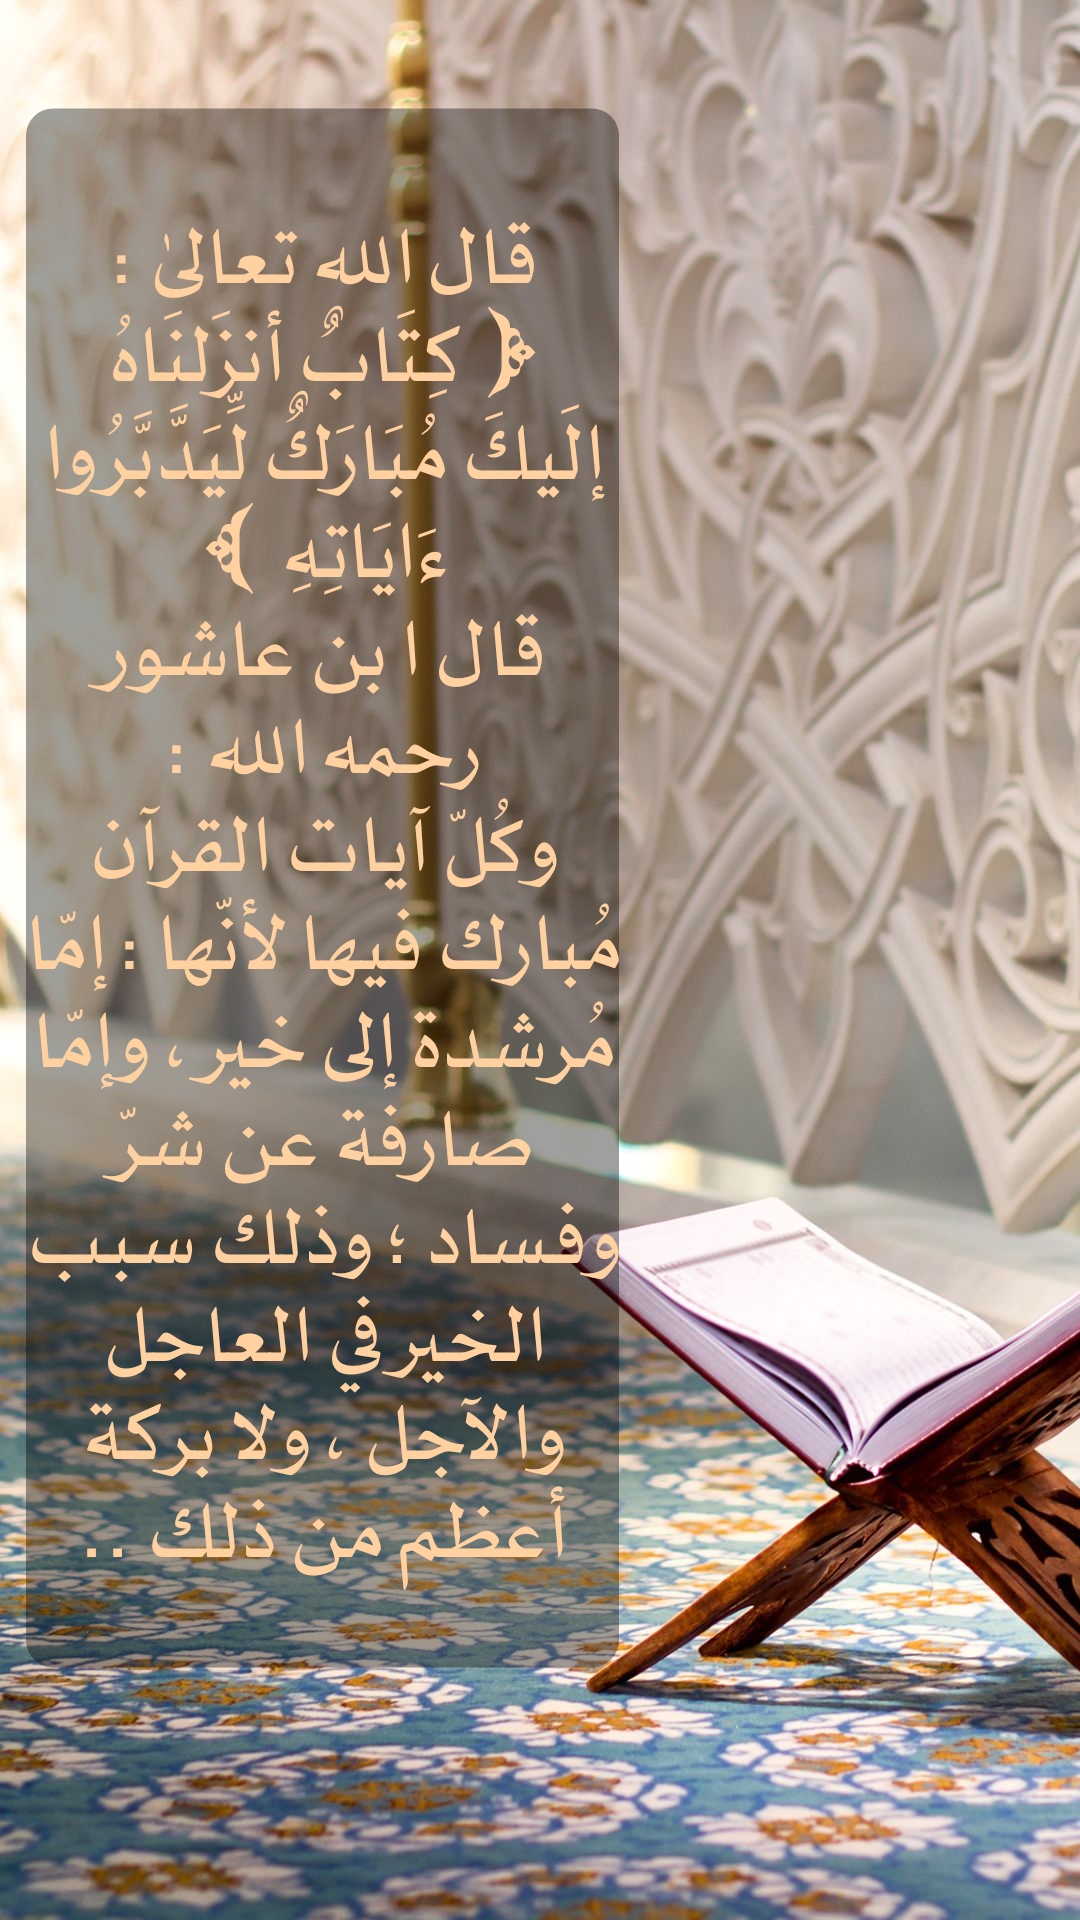 قال الله تعالىٰ :
﴿ كِتَابٌ أنزَلنَاهُ
إلَيكَ مُبَارَكٌ لِّيَدَّبَّرُوا
ءَايَاتِهِ ﴾
قال ا بن عاشور
رحمه الله :
وكُلّ آيات القرآن
مُبارك فيها لأنّها : إمّا
مُرشدة إلى خير ، وإمّا
صارفة عن شرّ
وفساد ؛ وذلك سبب
الخير في العاجل
والآجل ، ولا بركة
أعظم من ذلك ..